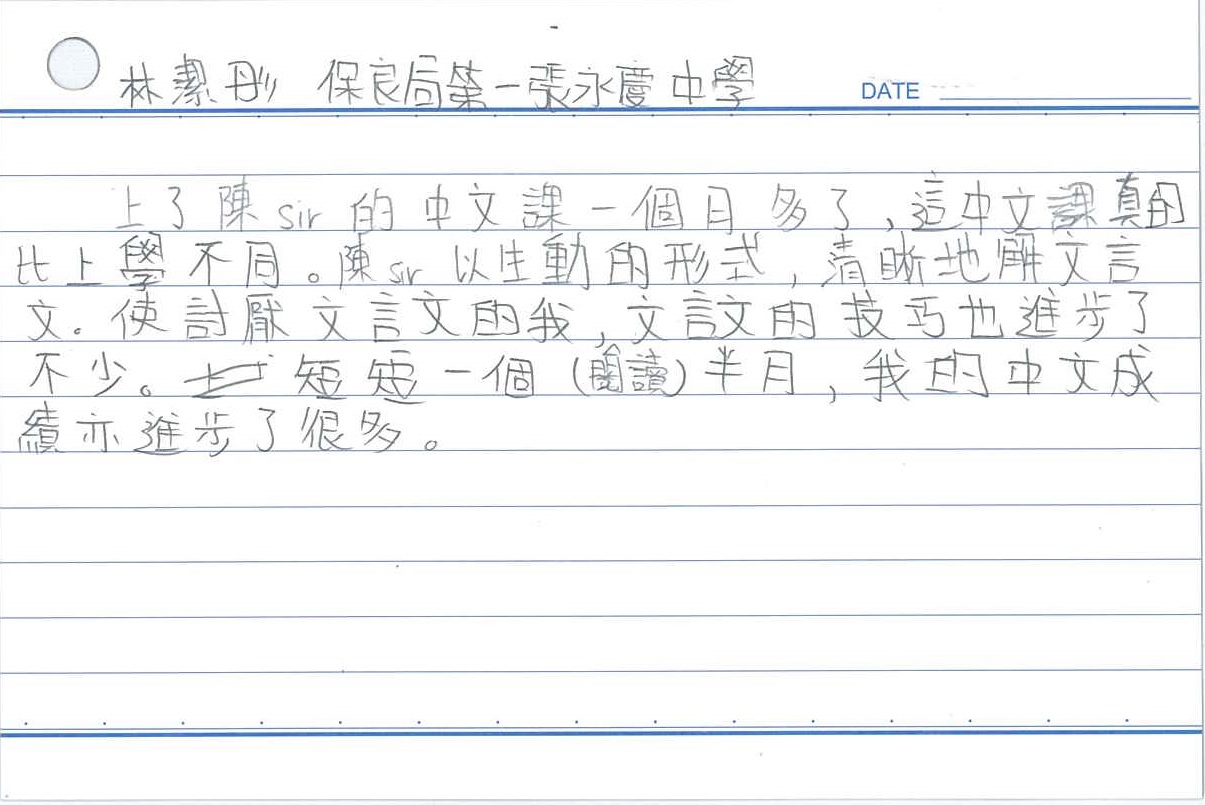 林潔彤 保良局第一張永慶中學
DATE
上了陳sir的中文課一個月多了,這中文課真的
比上學不同。陳sir以生動的形式,清晰地解文言
文。使討厭文言文的我,文言文的技巧也進步了
不少。短短一個(閱讀)半月,我的中文成
績亦進步了很多。